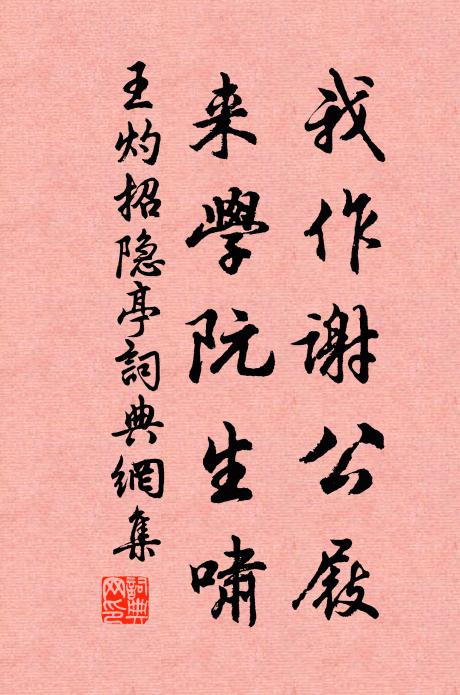 我作謝公屐
来學阮生嘯
王灼招隐亭詞典網集
詞典网印